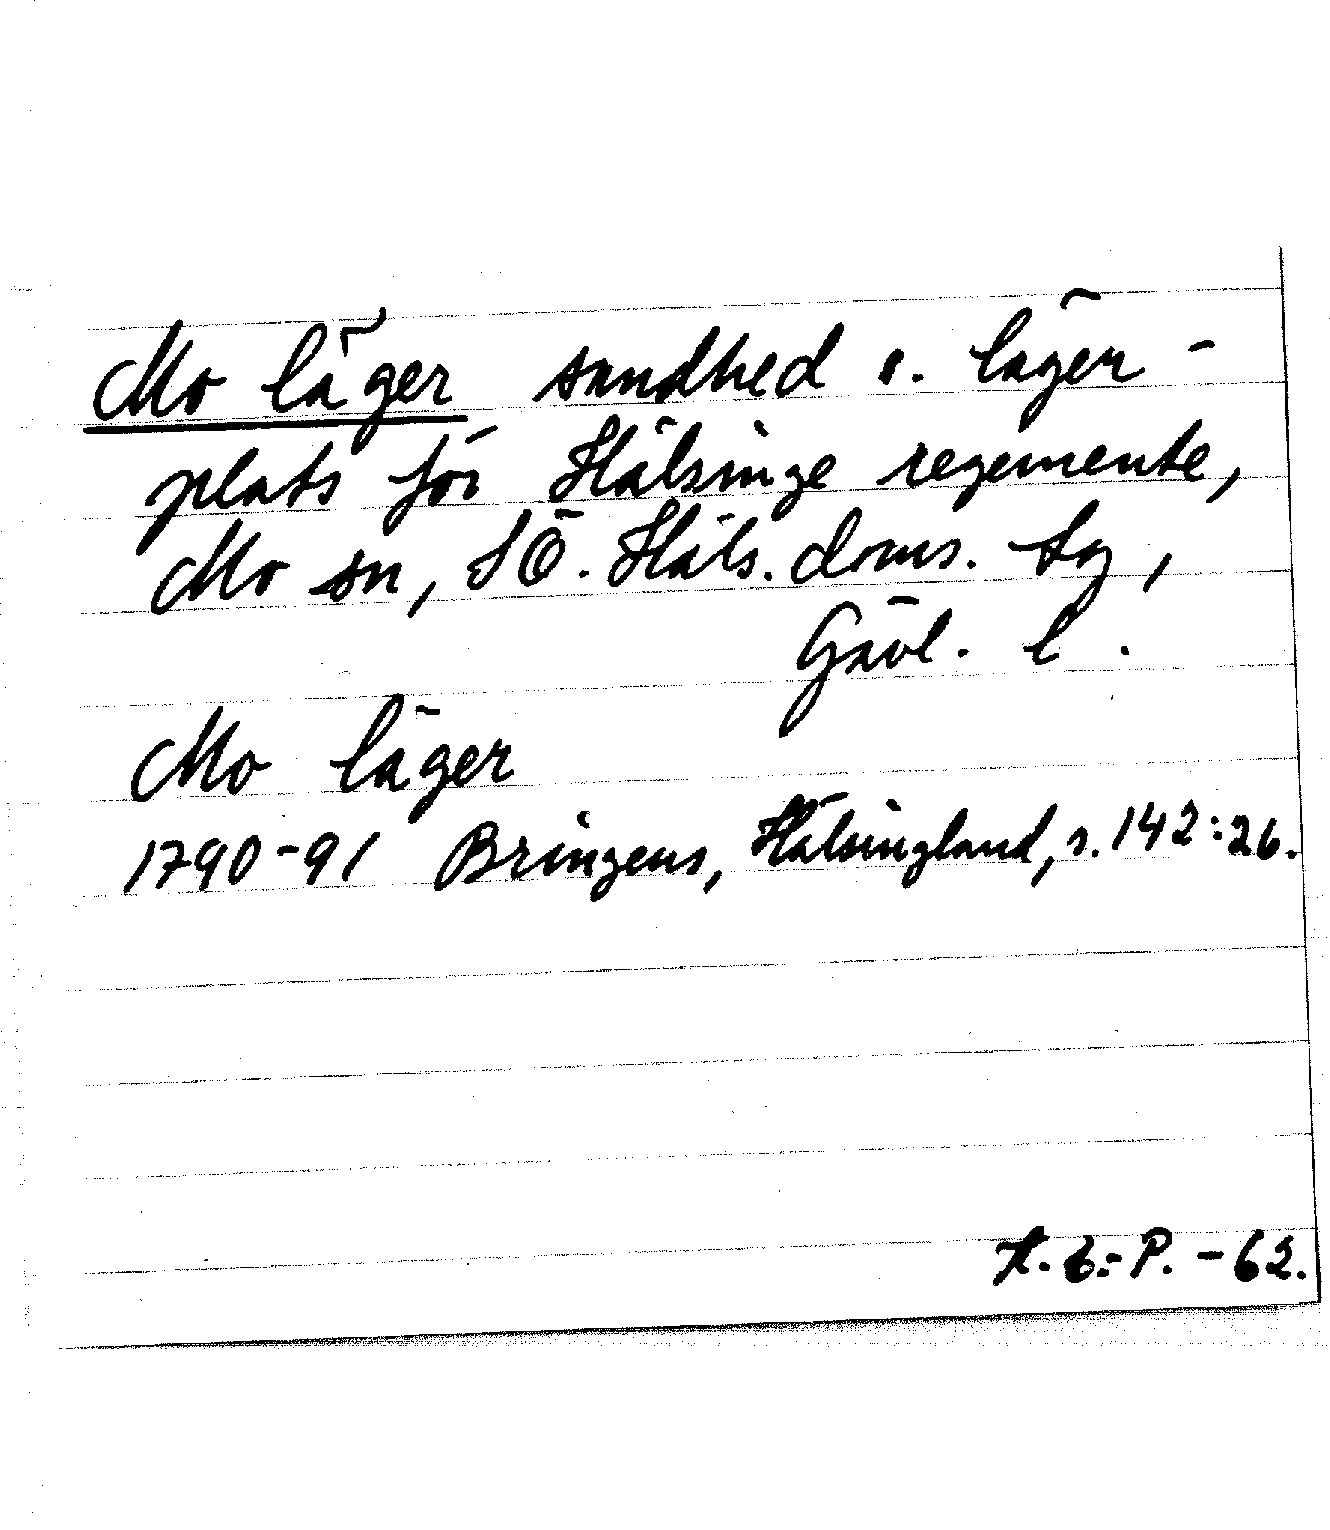 Mo läger sandhed o. läger-
plats för Hälsinge regemente,
Mo sn, SÖ. Häls. doms. tg,
Gävl. l.
Mo läger
1790-91 Bringéus, Hälsingland, s. 142:26.
P. -62.